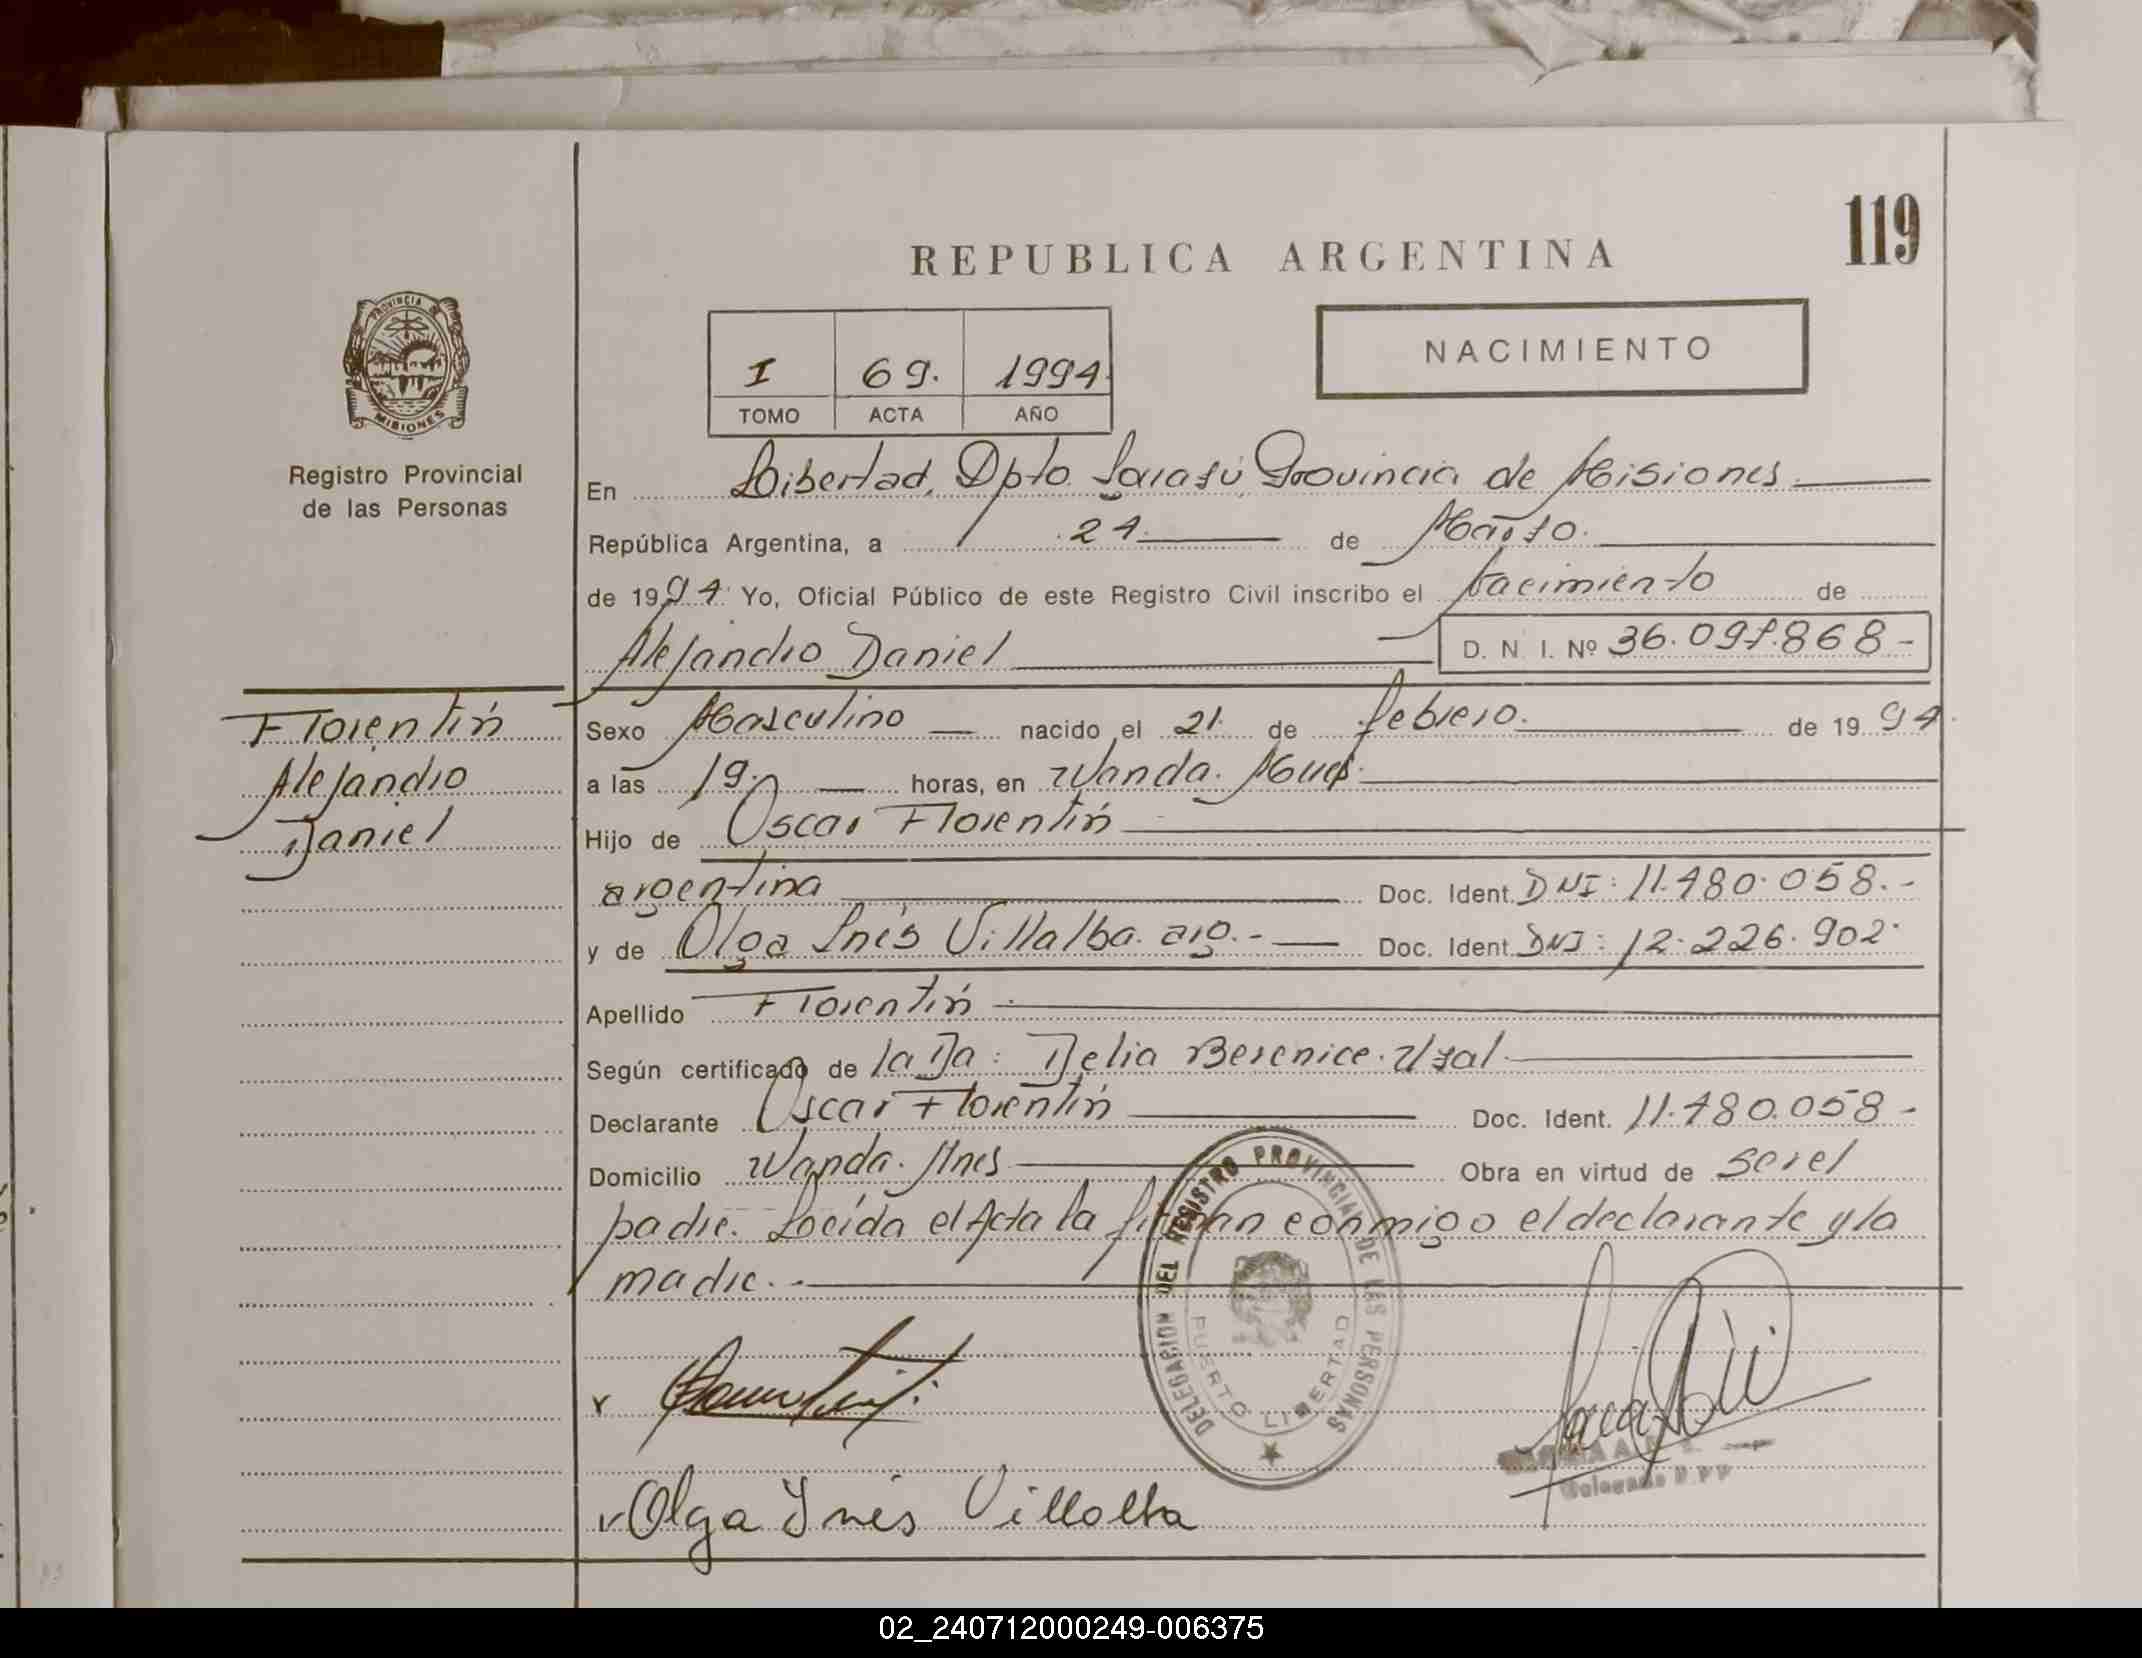 119
REPUBLICA ARGENTINA
PROVINCIA DE
MISIONES
Registro Provincial
de las Personas
I 69. 1994.
TOMO ACTA AÑO
NACIMIENTO
En Libertad, Dpto. Iguazú, Provincia de Misiones
República Argentina, a 24 de Marzo.
de 1994 Yo, Oficial Público de este Registro Civil inscribo el Nacimiento de
Alejandro Daniel D. N. I. Nº 36.097.868-
Florentín
Alejandro
Daniel
Sexo Masculino nacido el 21 de febrero. de 1994
a las 19. horas, en Wanda. Mnes.
Hijo de Oscar Florentín
argentina Doc. Ident. DNI: 11.480.058.-
y de Olga Inés Villalba. arg.- Doc. Ident. DNI: 12.226.902.
Apellido Florentín
Según certificado de la Da: Delia Berenice. Uzal.
Declarante Oscar Florentín Doc. Ident. 11.480.058-
Domicilio Wanda. Mnes Obra en virtud de ser el
padre. Leída el Acta la firman conmigo el declarante y la
madre.-
DELEGACION DEL REGISTRO PROVINCIAL DE LAS PERSONAS
PUERTO LIBERTAD
Olga Inés Villalba
02_240712000249-006375